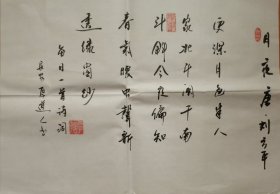 月夜 唐 刘方平
更深月色半人
家北斗阑干南
斗斜今夜偏知
春氣暖虫聲新
透绿窗纱
每日一首诗词